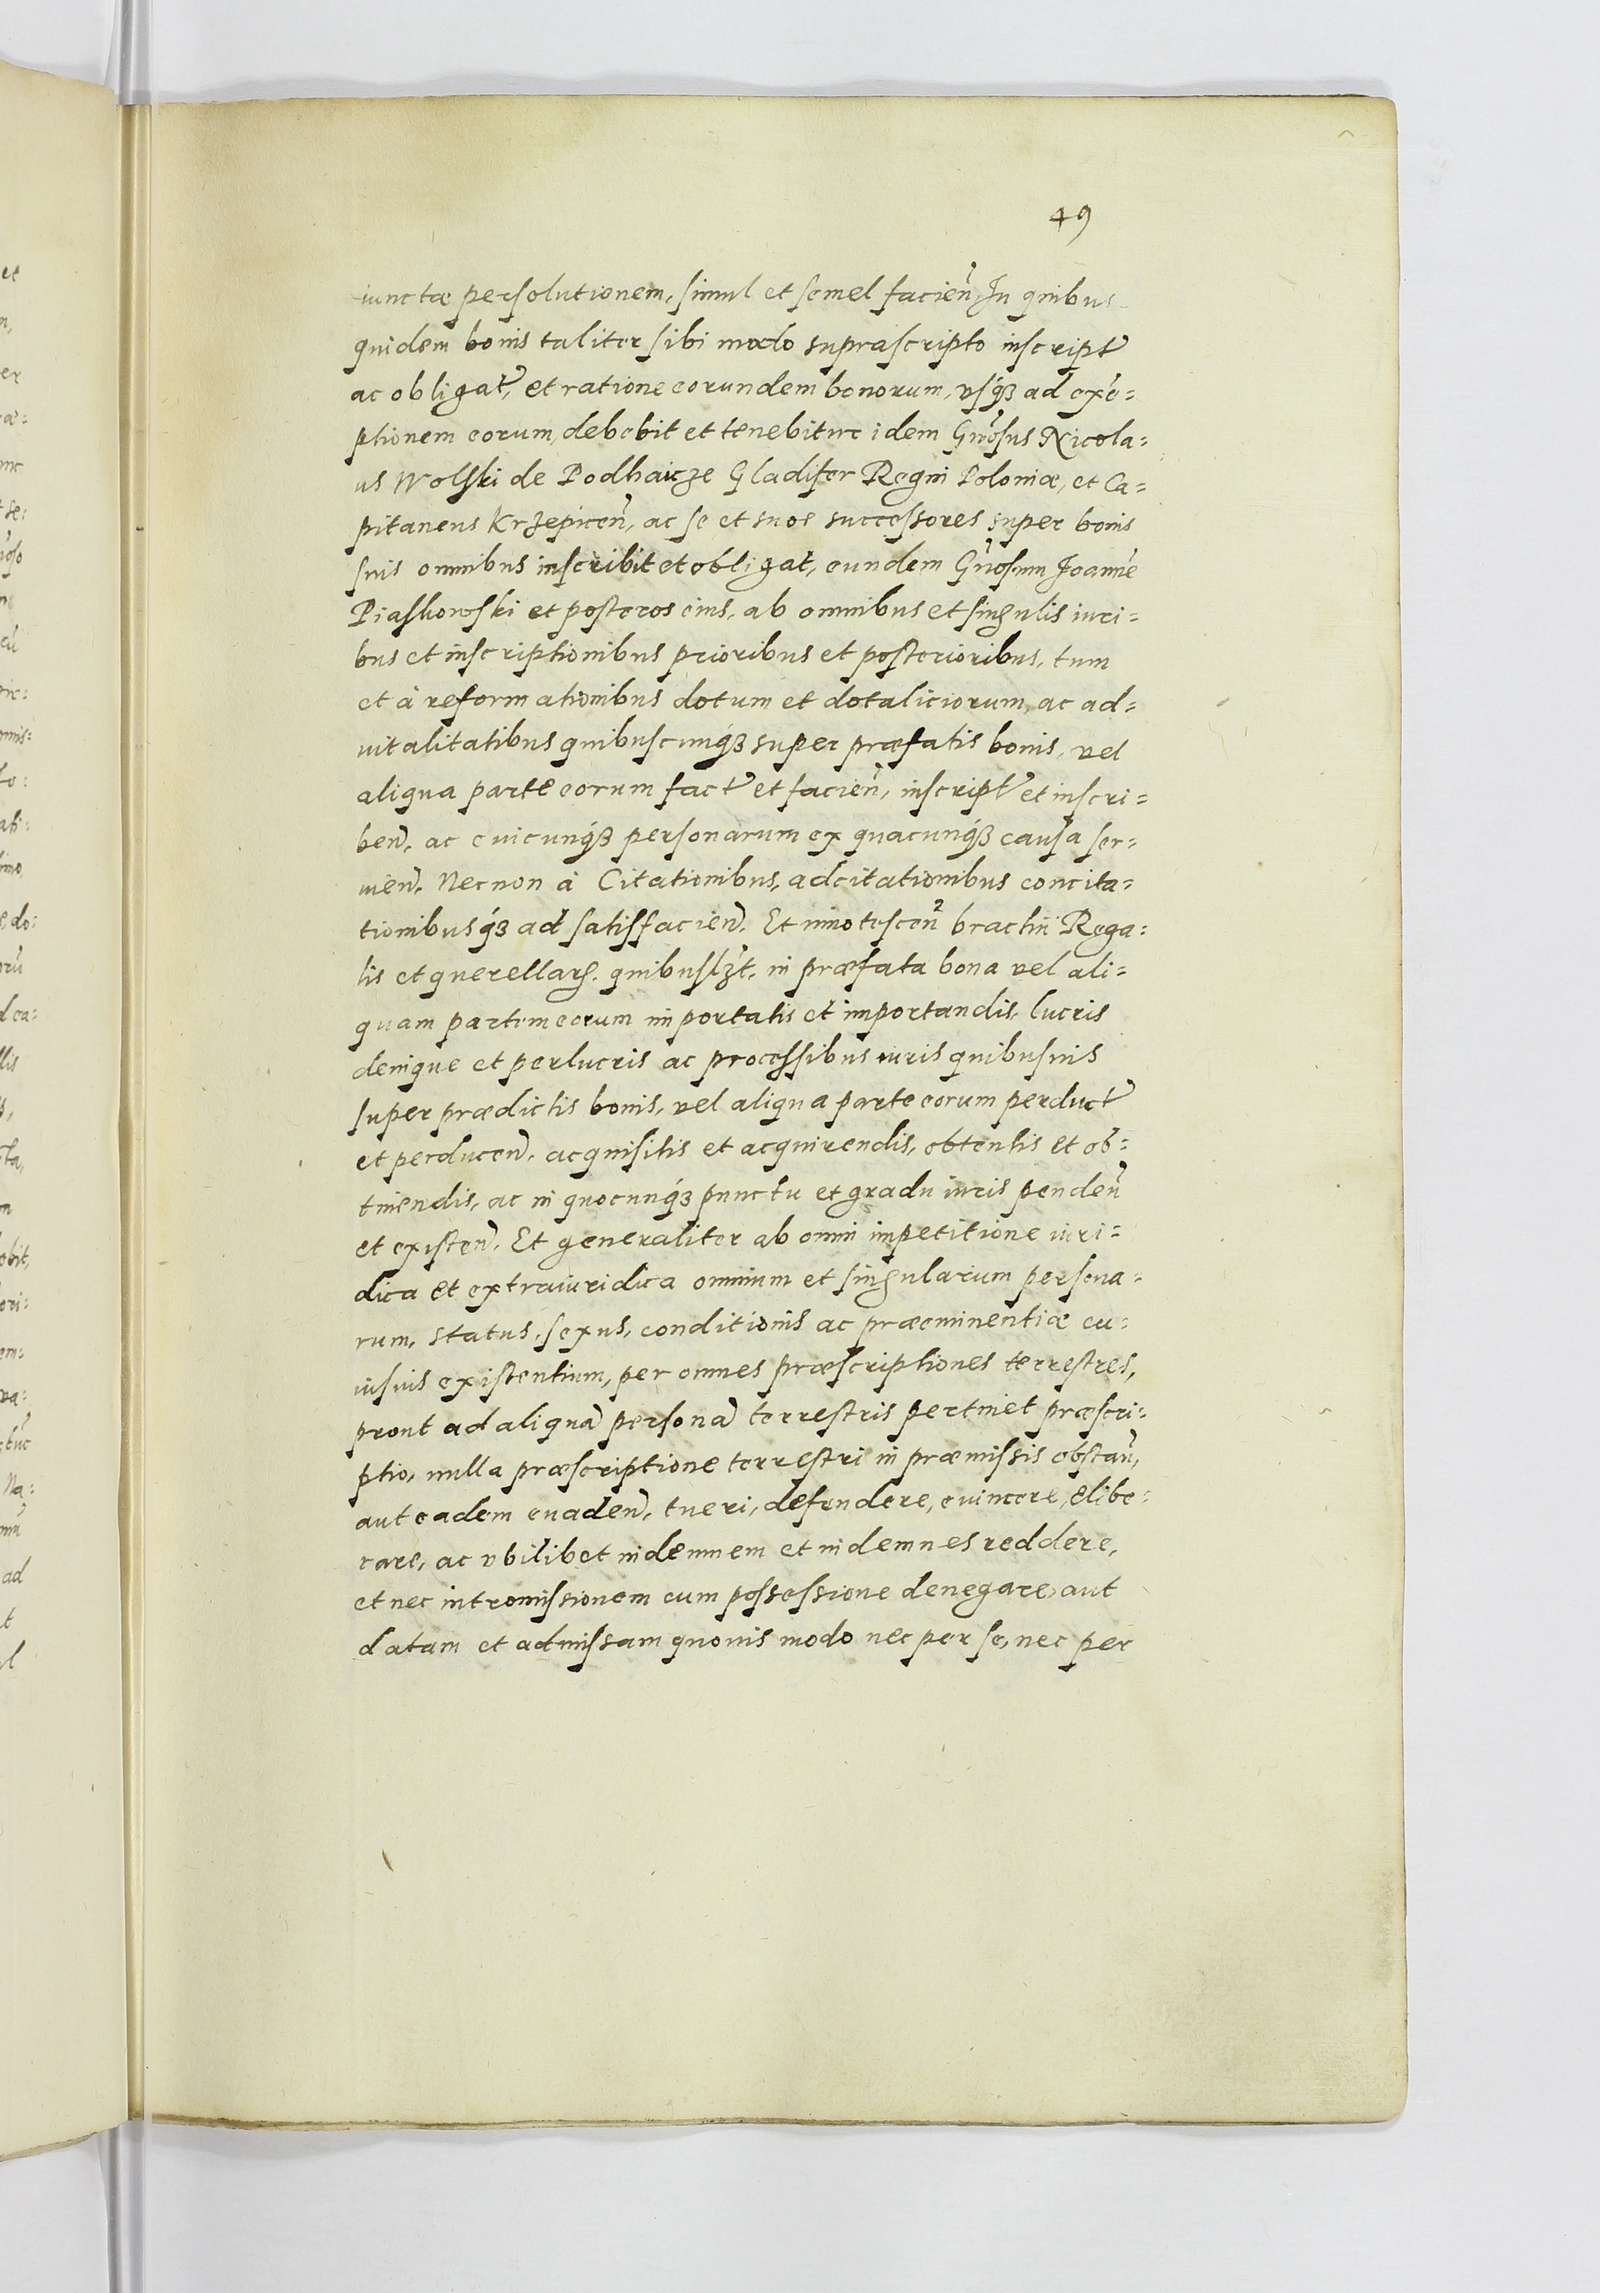 49
iunctæ persolutionem, simul et semel facien̄, In quibus
quidem bonis taliter sibi modo suprascripto inscript̄
ac obligat̄, et ratione eorundem bonorum, vsq́ꝫ ad exē=
ptionem eorum, debebit et tenebitur idem Gn̄osus Nicola=
us Wolski de Podhaicze Gladifer Regni Poloniæ, et Ca=
pitaneus Krzepicen̄, ac se et suos successores super bonis
suis omnibus inscribit et obligat, eundem Gn̄osum Joannē
Piaskowski et posteros eius, ab omnibus et singulis iuri=
bus et inscriptionibus prioribus et posterioribus, tum
et à reformationibus dotum et dotaliciorum, ac ad=
vitalitatibus quibuscunq́ꝫ super præfatis bonis, vel
aliqua parte eorum fact̄ et facien̄, inscript̄ et inscri=
ben̄, ac cuicunq́ꝫ personarum ex quacunq́ꝫ causa ser=
uien̄, Necnon à Citationibus, adcitationibus concita=
tionibusq́ꝫ ad satisfacien̄. Et innotescen̄ brachii Rega=
lis et querellarꝫ. quibuslꝫt, in præfata bona vel ali=
quam partem eorum importatis et importandis, lucris
denique et perlucris ac processibus iuris quibusuis
super prædictis bonis, vel aliqua parte eorum perduct̄
et perducen̄, acquisitis et acquirendis, obtentis et ob=
tinendis, ac in quocunq́ꝫ punctu et gradu iuris penden̄
et existen̄, Et generaliter ab omni impetitione iuri=
dica et extraiuridica omnium et singularum persona=
rum, status, sexus, conditionis ac præeminentiæ cu=
iusuis existentium, per omnes præscriptiones terrestres,
prout ad aliquā personā terrestris pertinet præscri=
ptio, nulla præscriptione terrestri in præmissis obstan̄,
aut eadem euaden̄, tueri, defendere, euincere, elibe=
rare, ac vbilibet indemnem et indemnes reddere,
et nec intromissionem cum possessione denegare, aut
datam et admissam quouis modo nec per se, nec per